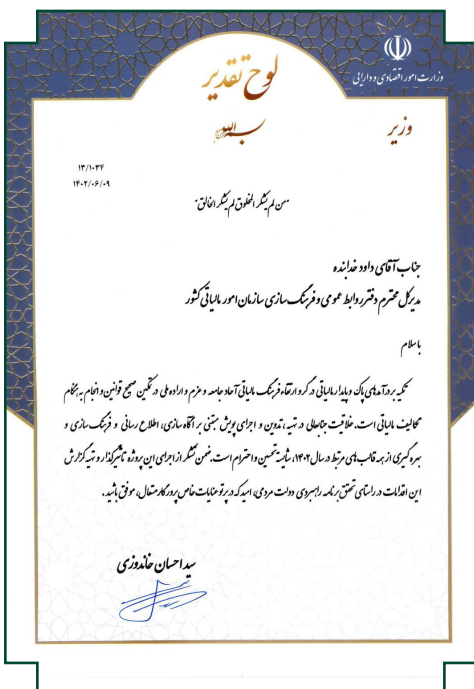 لوح تقدیر
وزارت امور اقتصادی و دارایی
وزیر
بسم الله
۱۳/۱۰۳۴
۱۴۰۲/۰۶/۰۹
"من لم یشکر المخلوق لم یشکر الخالق"
جناب آقای داود خدابنده
مدیرکل محترم دفتر روابط عمومی و فرهنگ سازی سازمان امور مالیاتی کشور
با سلام
تکیه بر درآمدهای پاک و پایدار مالیاتی در گرو ارتقاء فرهنگ مالیاتی آحاد جامعه و عزم و اراده ملی در تمکین صحیح قوانین و انجام به هنگام
تکالیف مالیاتی است. خلاقیت جنابعالی در تهیه، تدوین و اجرای پویش مبتنی بر آگاه سازی، اطلاع رسانی و فرهنگ سازی و
بهره گیری از همه قالب های مرتبط در سال ۱۴۰۲، شایسته تحسین و احترام است. ضمن تشکر از اجرای این پروژه تاثیرگذار و تهیه گزارش
این اقدامات در راستای تحقق برنامه راهبردی دولت مردمی، امید که در پرتو عنایات خاص پروردگار متعال، موفق باشید.
سید احسان خاندوزی